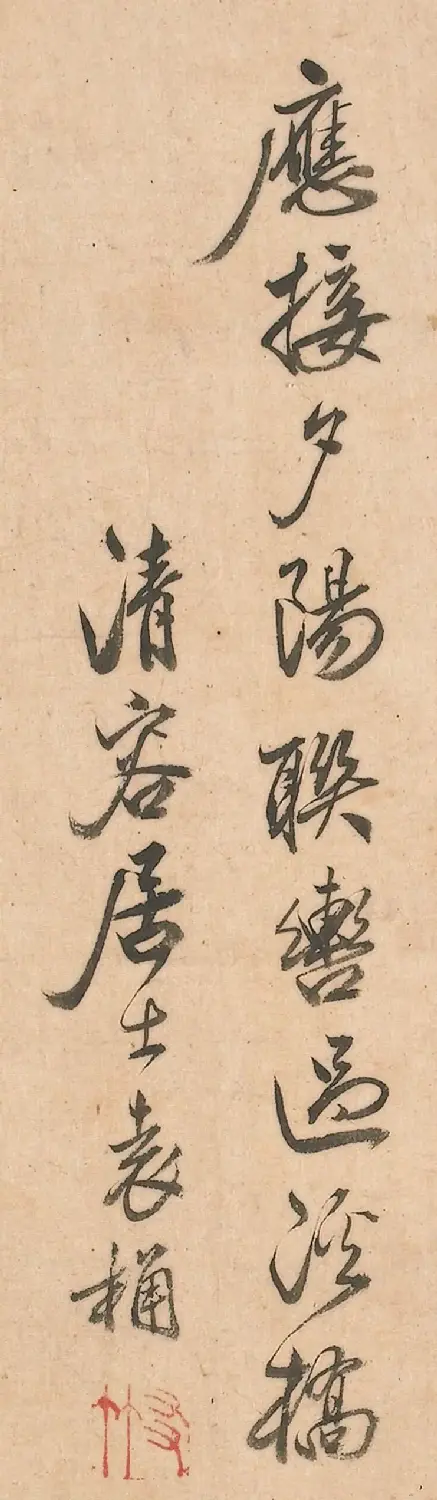 應接夕陽聯轡過溪橋
清容居士袁桷